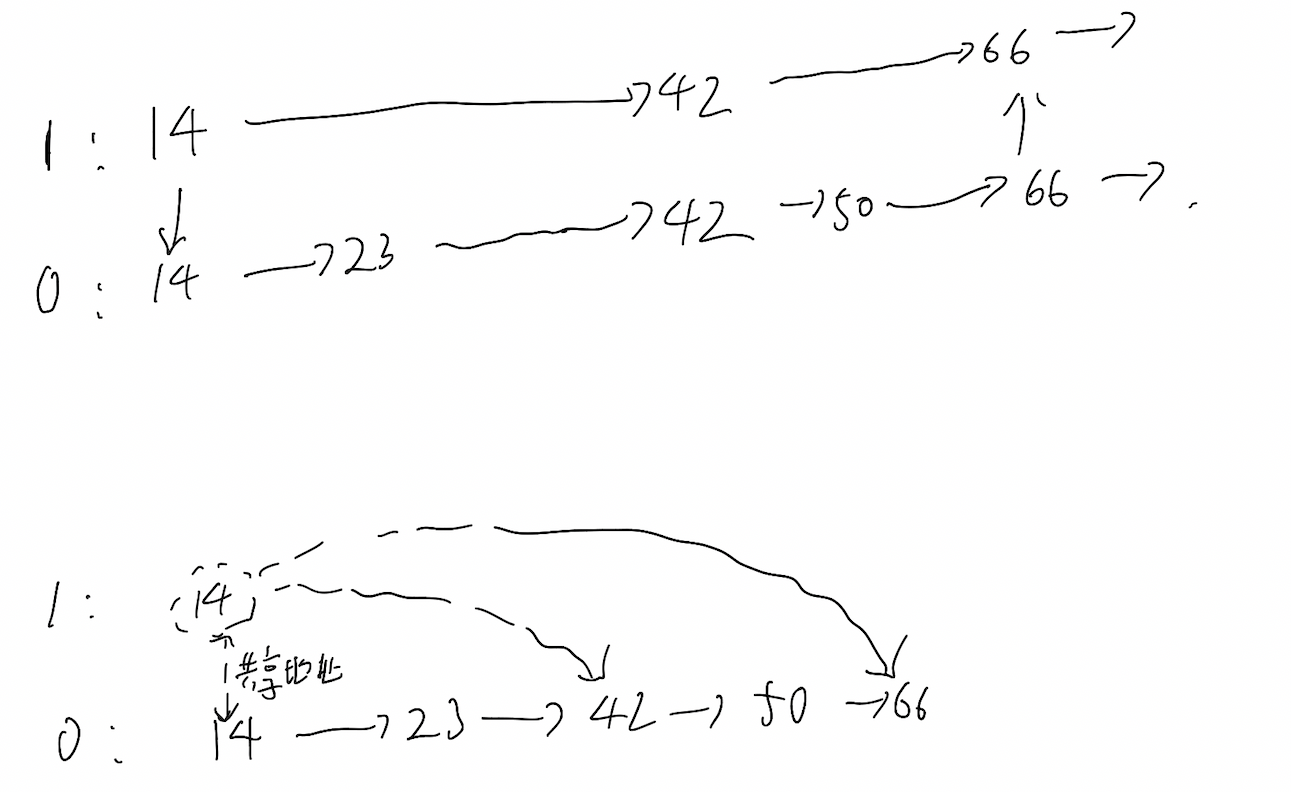 1: 14 → 42 → 66 →
↓ ↑
0: 14 → 23 → 42 → 50 → 66 →
1: 14
共享地址
0: 14 → 23 → 42 → 50 → 66